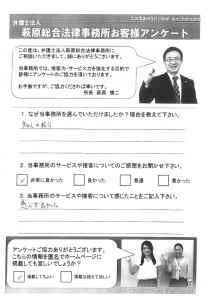 Confidential client questionnaire
弁護士法人
萩原総合法律事務所お客様アンケート
この度は、弁護士法人萩原総合法律事務所に
ご相談いただきまして、誠にありがとうございます。
当事務所では、接客力・サービス力を強化する目的で
皆様にアンケートのご協力を頂いております。
お手数ですが、ご協力くだされば幸いです。
所長 萩原 慎二
1. なぜ当事務所を選んでいただけましたか？理由を教えて下さい。
知人の紹介
2. 当事務所のサービスや接客についてのご感想をお聞かせ下さい。
非常に良かった 良かった 普通 悪かった
3. 当事務所のサービスや接客について感じたことをご記入下さい。
感じが良かった
アンケートご協力ありがとうございます。
こちらの情報を匿名でホームページに
掲載しても宜しいでしょうか？
掲載してもよい 掲載は控えてほしい